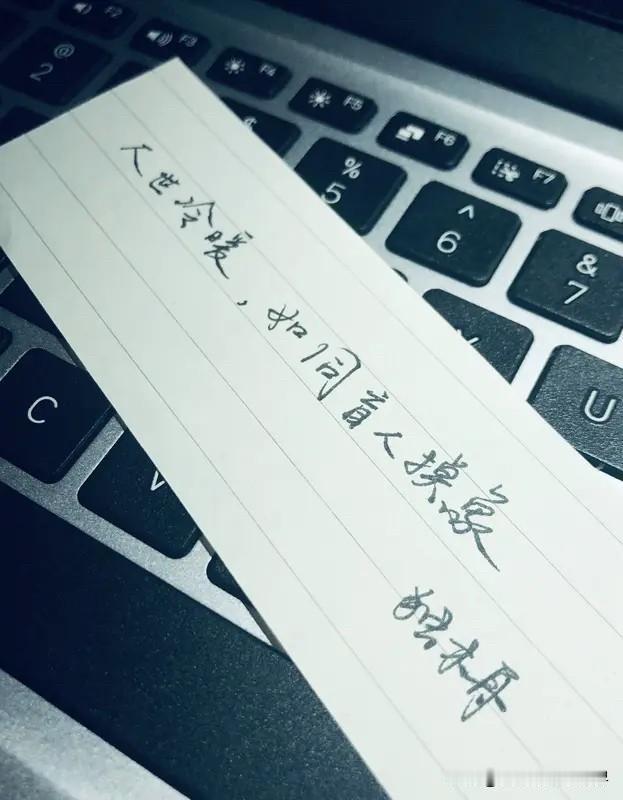 F2
F3
F4
F5
F6
F7
@
2
%
5
^
6
&
7
U
C
V
人世冷暖，如同盲人摸象